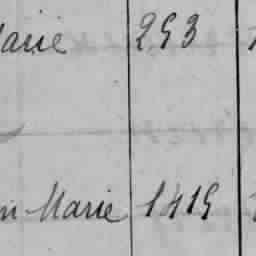 Marie 253
n Marie 1415